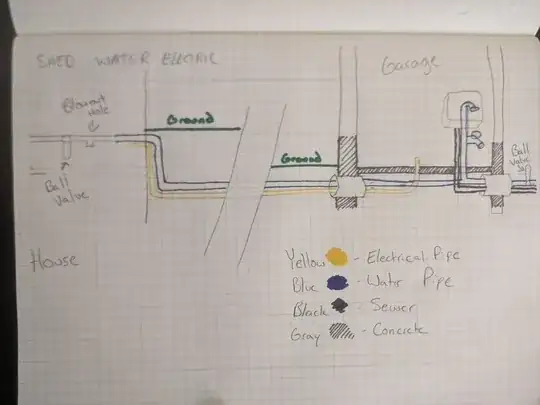 SHED WATER ELECTRIC
Garage
Blowout
hole
Ground
Ground
Ball
Valve
Ball
Valve
House
Yellow - Electrical Pipe
Blue - Water Pipe
Black - Sewer
Gray - Concrete